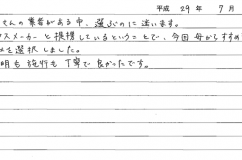 平成 29年 7月
さんの業者がある中、選ぶのに迷います。
スメーカーと提携しているということで、今回母からすすめ
メを選択しました。
明も施行も丁寧で良かったです。